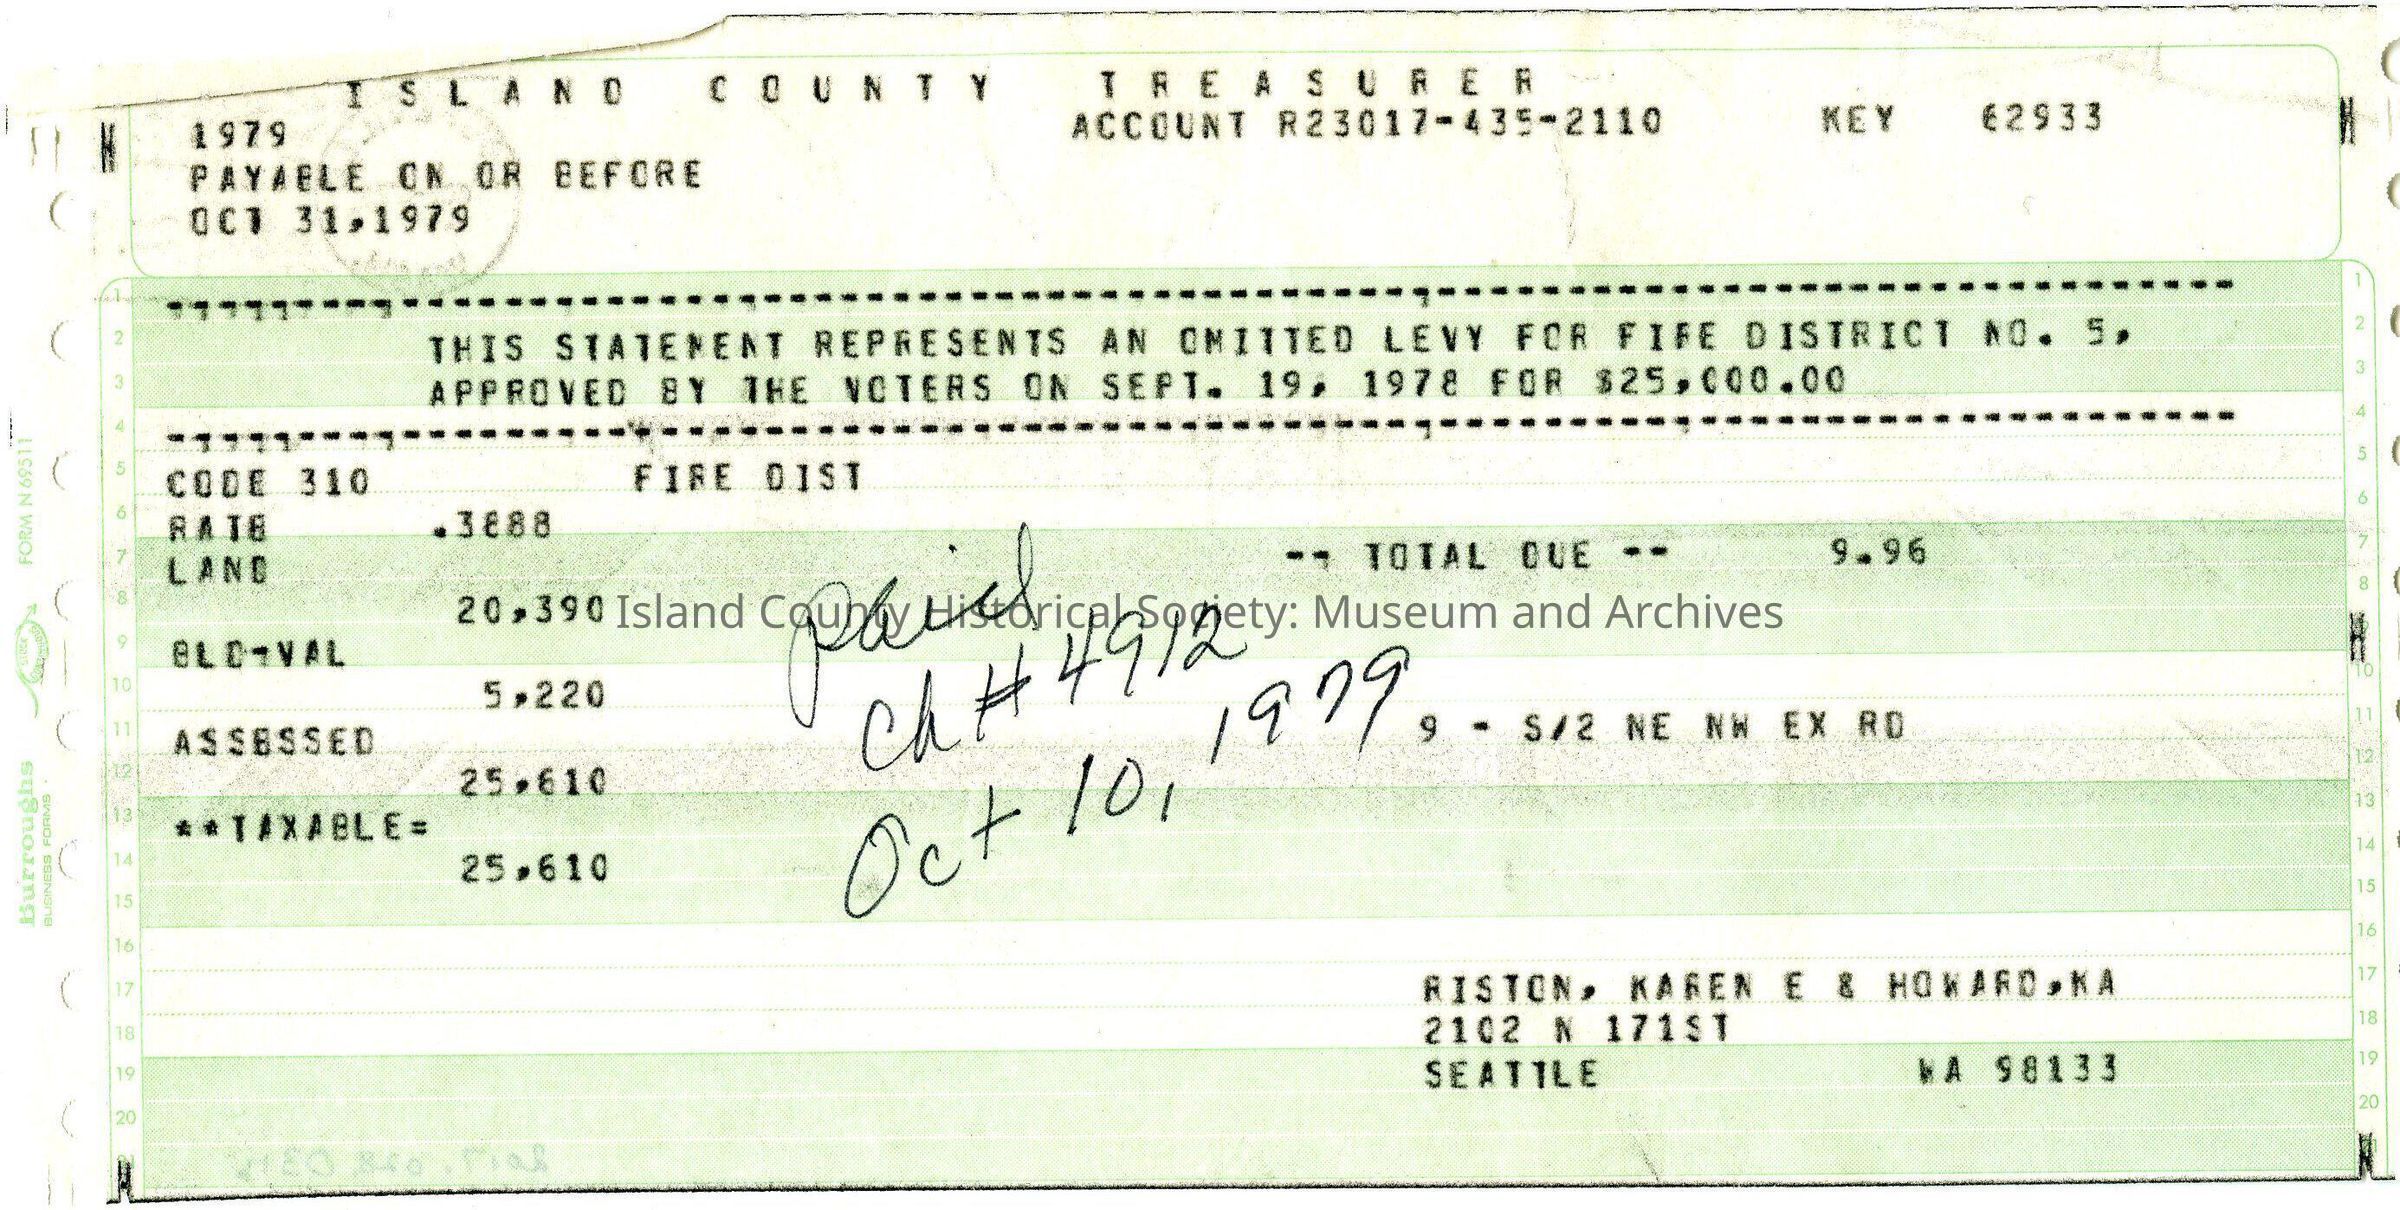 ISLAND COUNTY TREASURER
1979 ACCOUNT R23017-435-2110 KEY 62933
PAYABLE ON OR BEFORE
OCT 31,1979
THIS STATEMENT REPRESENTS AN OMITTED LEVY FOR FIRE DISTRICT NO. 5,
APPROVED BY THE VOTERS ON SEPT. 19, 1978 FOR $25,000.00
CODE 310 FIRE DIST
RATE .3888
LAND -- TOTAL DUE -- 9.96
20,390
Island County Historical Society: Museum and Archives
BLD-VAL
5,220
ASSESSED 9 - S/2 NE NW EX RD
25,610
**TAXABLE=
25,610
paid
ch # 4912
Oct 10, 1979
RISTON, KAREN E & HOWARD,KA
2102 N 171ST
SEATTLE WA 98133
FORM N69511
Burroughs
BUSINESS FORMS
1 1
2 2
3 3
4 4
5 5
6 6
7 7
8 8
9
10 10
11 11
12 12
13 13
14 14
15 15
16 16
17 17
18 18
19 19
20 20